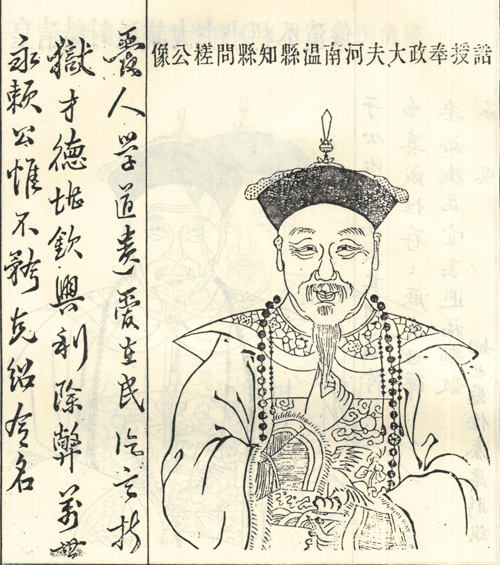 誥授奉政大夫河南温縣知縣問槎公像
愛人學道遺愛在民片言折
獄才德堪欽興利除弊萬世
永賴公惟不矜克紹令名